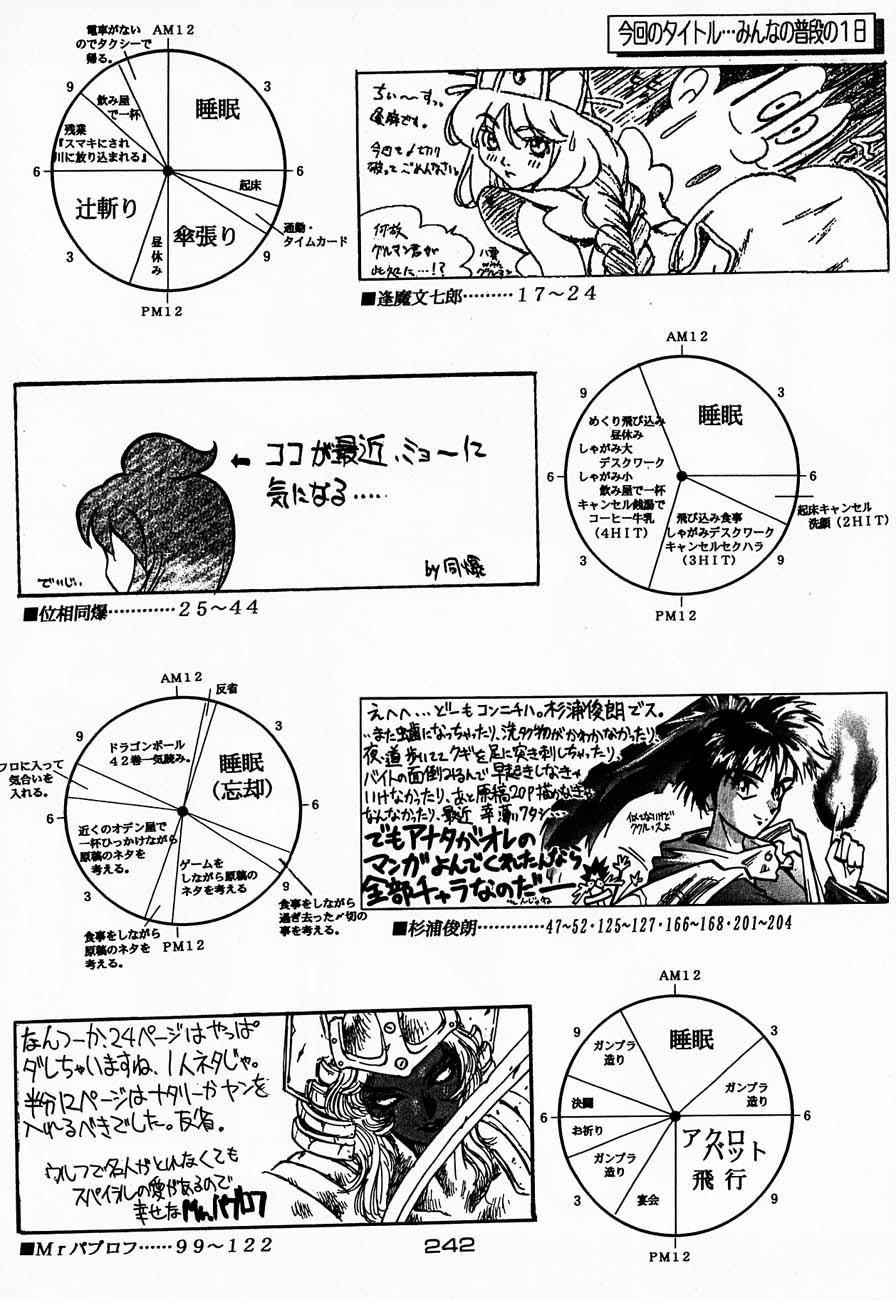 今回のタイトル…みんなの普段の1日
電車がない
のでタクシーで
帰る。
AM12
9
3
飲み屋
で一杯
睡眠
残業
『スマキにされ
川に放り込まれる』
6
6
起床
辻斬り
傘張り
通勤・
タイムカード
昼休み
3
9
PM12
ちぃ〜すっ。
逢魔です。
今回〆切り
破ってごめんなさい。
何故
グルマン君が
此処に…!?
■逢魔文七郎………17〜24
ココが最近、ミョ〜に
気になる……
でいじぃ
by同爆
■位相同爆…………25〜44
AM12
9
3
睡眠
めくり飛び込み
昼休み
しゃがみ大
デスクワーク
しゃがみ小
飲み屋で一杯
キャンセル銭湯で
コーヒー牛乳
(4HIT)
6
起床キャンセル
洗顔(2HIT)
飛び込み食事
しゃがみデスクワーク
キャンセルセクハラ
(3HIT)
3
9
PM12
AM12
反省
9
3
ドラゴンボール
42巻一気読み。
睡眠
(忘却)
フロに入って
気合いを
入れる。
6
6
近くのオデン屋で
一杯ひっかけながら
原稿のネタを
考える。
ゲームを
しながら原稿の
ネタを考える
3
9
食事をしながら
過ぎ去った〆切の
事を考える。
食事をしながら
原稿のネタを
考える。
PM12
えへへ…、どーもコンニチハ。杉浦俊朗でス。
…また虫歯になっちゃったり、洗タク物がかわかなかったり、
夜、道歩いててクギを足に突き刺しちゃったり、
バイトの面倒みるんで早起きしなきゃ
いけなかったり、あと原稿20P描かなきゃ
なんなかったり、最近幸薄いワタシ…
でもアナタがオレの
マンガよんでくれたんなら
全部チャラなのだー
似てないけど
ククルッスよ
■杉浦俊朗…………47〜52・125〜127・166〜168・201〜204
なんつーか、24ページはやっぱ
ダレちゃいますね、1人ネタじゃ。
半分12ページはナタリーかヤンを
入れるべきでした。反省。
ウルフで名人がとれなくても
スパイラルの愛があるので
幸せなMr.パブロフ
■Mrパブロフ……99〜122
AM12
9
3
ガンプラ
造り
睡眠
ガンプラ
造り
決闘
6
6
お祈り
アクロ
バット
飛行
ガンプラ
造り
3
9
宴会
PM12
242